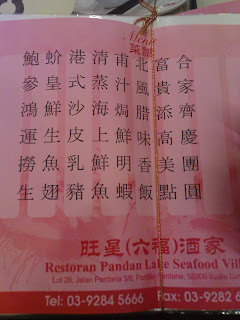 Menu
合家齊慶團圓
富貴添高美點
北風腊味香飯
甫汁焗鮮明蝦
清蒸海上鮮魚
港式沙皮乳豬
蚧皇鮮生魚翅
鮑參鴻運撈生
旺星(六福)酒家
Restoran Pandan Lake Seafood Vill
Lot 28, Jalan Perdana 3/8, Pandan 55300 Kuala
Tel: 03-9284 5666 Fax: 03-9282 6